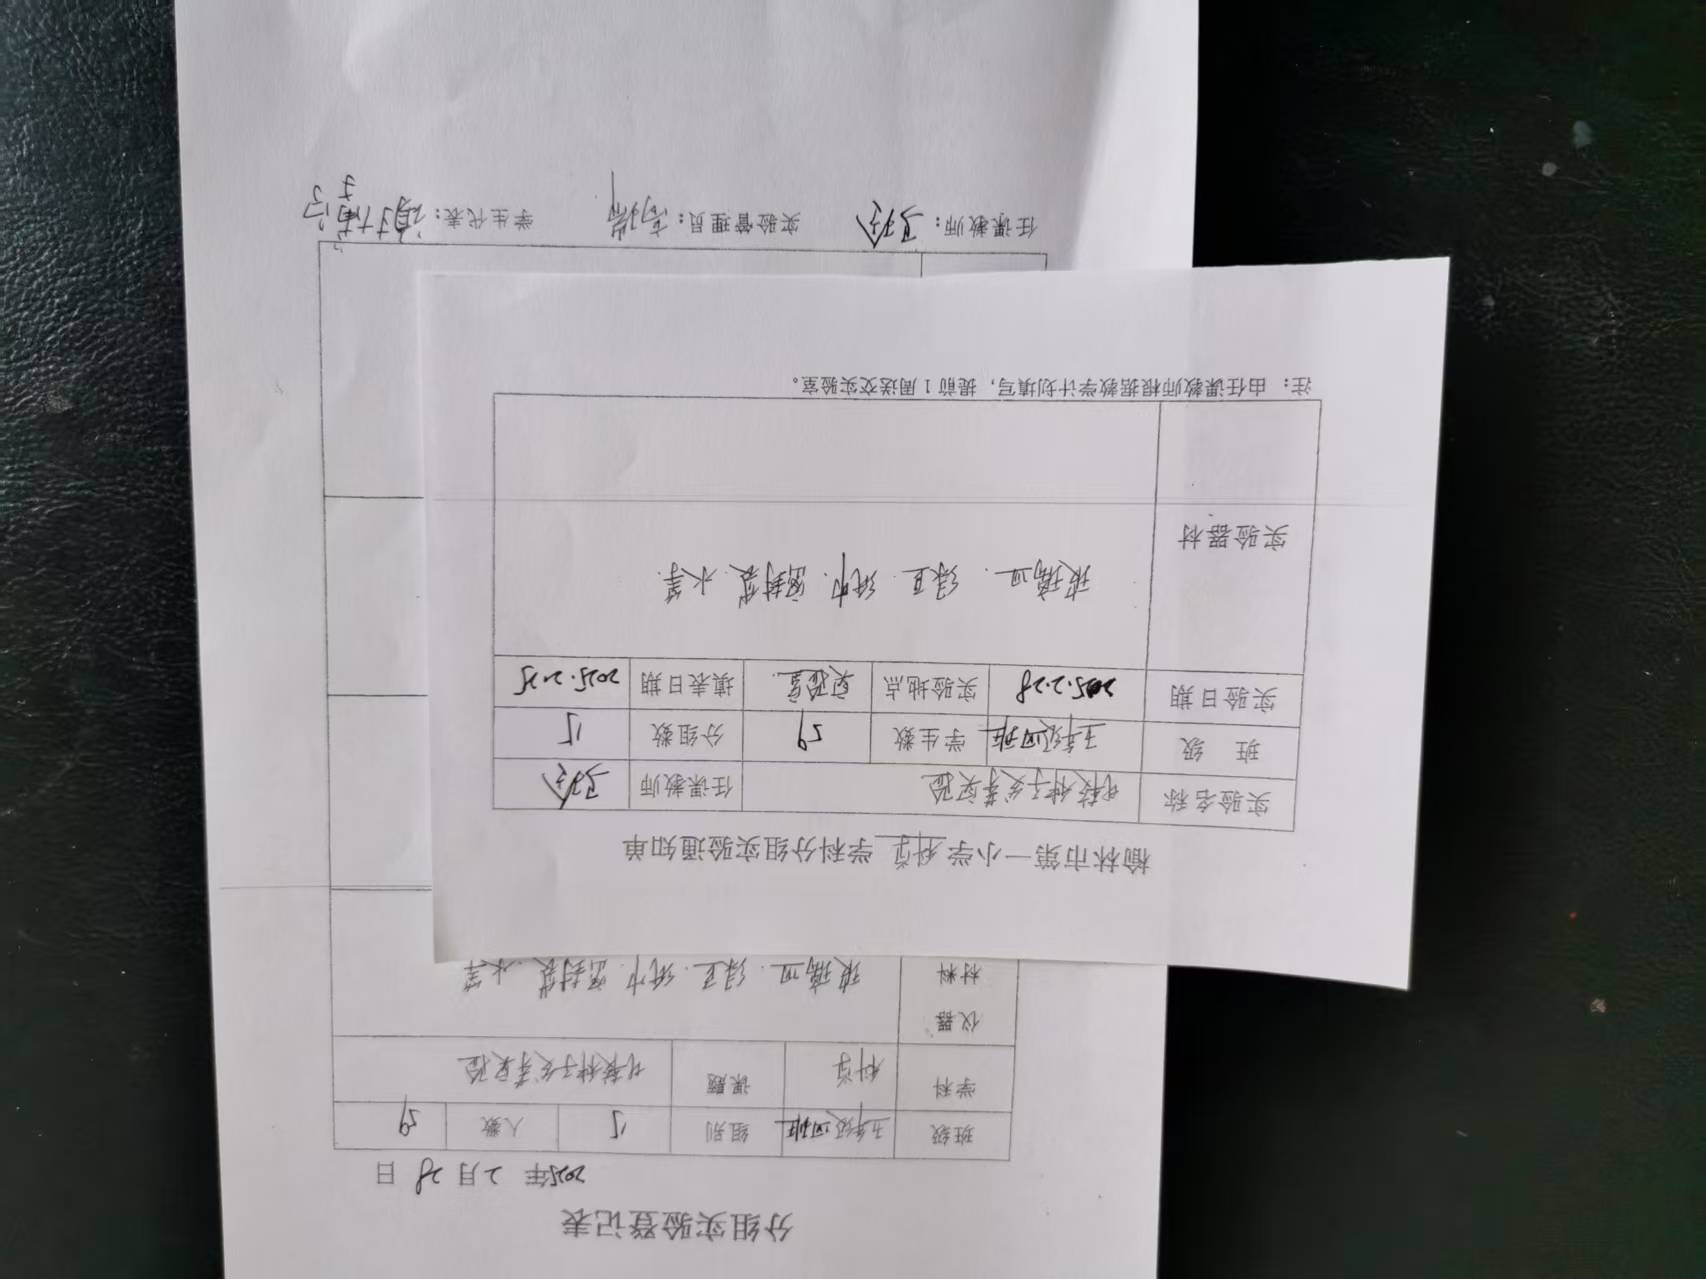 榆林市第一小学 科学 学科分组实验通知单
实验名称 比较种子发芽实验 任课教师
班 级 五年级四班 学生数 59 分组数 15
实验日期 2025.2.28 实验地点 实验室 填表日期 2025.2.25
实验器材 玻璃皿. 绿豆. 纸巾. 密封袋. 水等.
注：由任课教师根据教学计划填写，提前1周送交实验室。
分组实验登记表
2025年 2月 28 日
班级 五年级四班 组别 15 人数 59
学科 科学 课题 比较种子发芽实验
仪器
材料 玻璃皿. 绿豆. 纸巾. 密封袋. 水等
任课教师： 实验管理员： 学生代表：